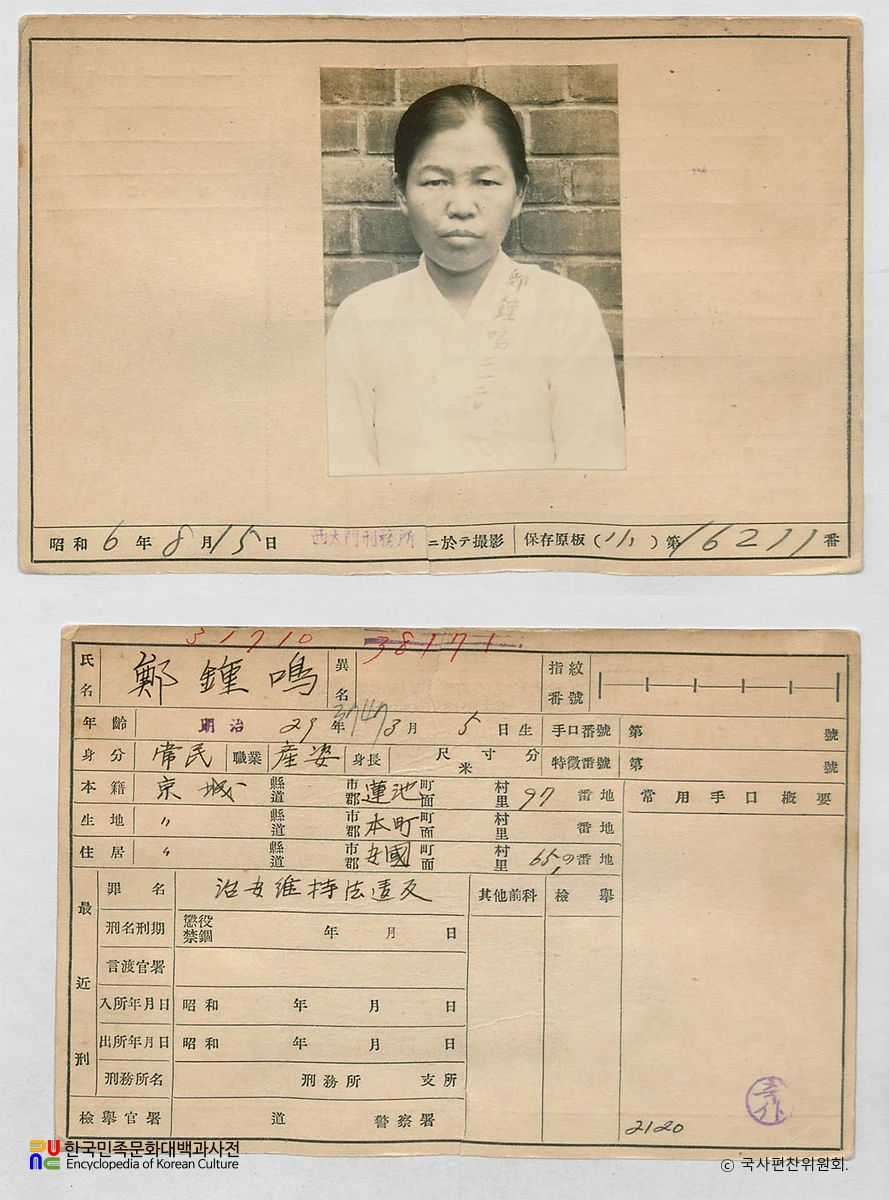 鄭鍾鳴
昭和6年8月15日 西大門刑務所ニ於テ撮影 保存原板(小)第16277番
31710 38171
氏名 鄭鍾鳴 異名 指紋番號
年齡 明治29年3月5日生 手口番號 第 號
身分 常民 職業 産婆 身長 尺寸分 米 特徵番號 第 號
本籍 京城 縣道 市郡 蓮池 町面 村里 97番地 常用手口概要
生地 〃 縣道 市郡 本町 町面 村里 番地
住居 〃 縣道 市郡 安國 町面 村里 65,の番地
最近刑
罪名 治安維持法違反 其他前科 檢擧
刑名刑期 懲役 禁錮 年月日
言渡官署
入所年月日 昭和 年月日
出所年月日 昭和 年月日
刑務所名 刑務所 支所
檢擧官署 道 警察署
2120
한국민족문화대백과사전
Encyclopedia of Korean Culture
© 국사편찬위원회.